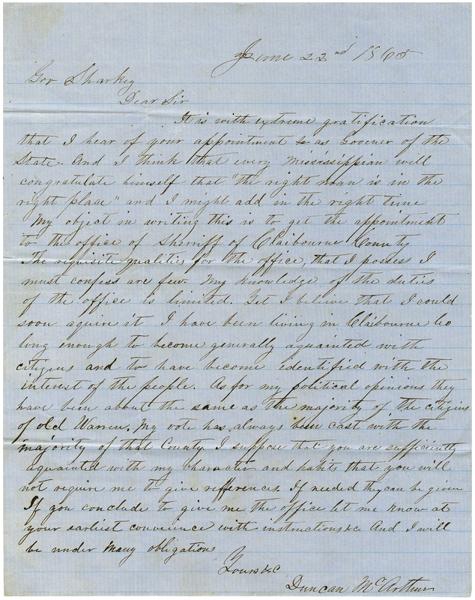 June 22nd 1865
Gov Sharkey
Dear Sir
It is with extreme gratification
that I hear of your appointment as Govener of the
State. And I think that every Mississippian will
congratulate himself that "the right man is in the
right place" and I might add in the right time
My object in writing this is to get the appointment
to the office of Sherriff of Claibourne County
The requisite qualities for the office, that I possess I
must confess are few. My knowledge of the duties
of the office is limited. Yet I believe that I could
soon aquire it I have been living in Claibourne Co
long enough to become generally aquainted with
citizens and to have become identified with the
interest of the people. As for my political opinions they
have been about the same as the majority of the citizens
of old Warren, my vote has always been cast with the
majority of that County. I suppose that you are sufficiently
aquainted with my character and habits that you will
not require me to give refferences. If needed they can be given
If you conclude to give me the office let me know at
your earliest convience with instructions &c And I will
be under many obligations
Yours &c
Duncan McArthur